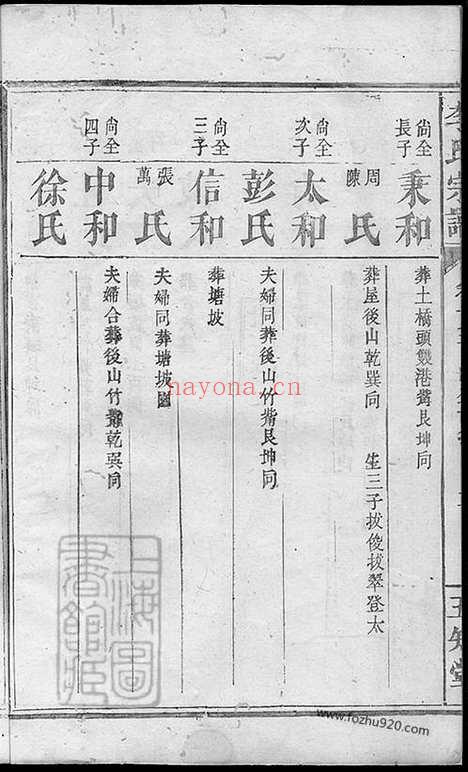 李氏宗譜
五知堂
尙全長子
秉和
葬土橋頭雙港觜艮坤向
周陳氏
葬屋後山乾巽向 生三子拔俊拔翠登太
尙全次子
太和
夫婦同葬後山竹觜艮坤向
彭氏
尙全三子
信和
葬塘坡
張萬氏
夫婦同葬塘坡園
尙全四子
中和
夫婦合葬後山竹觜乾巽向
徐氏
上海圖書館藏
hayona.cn
www.fozhu920.com